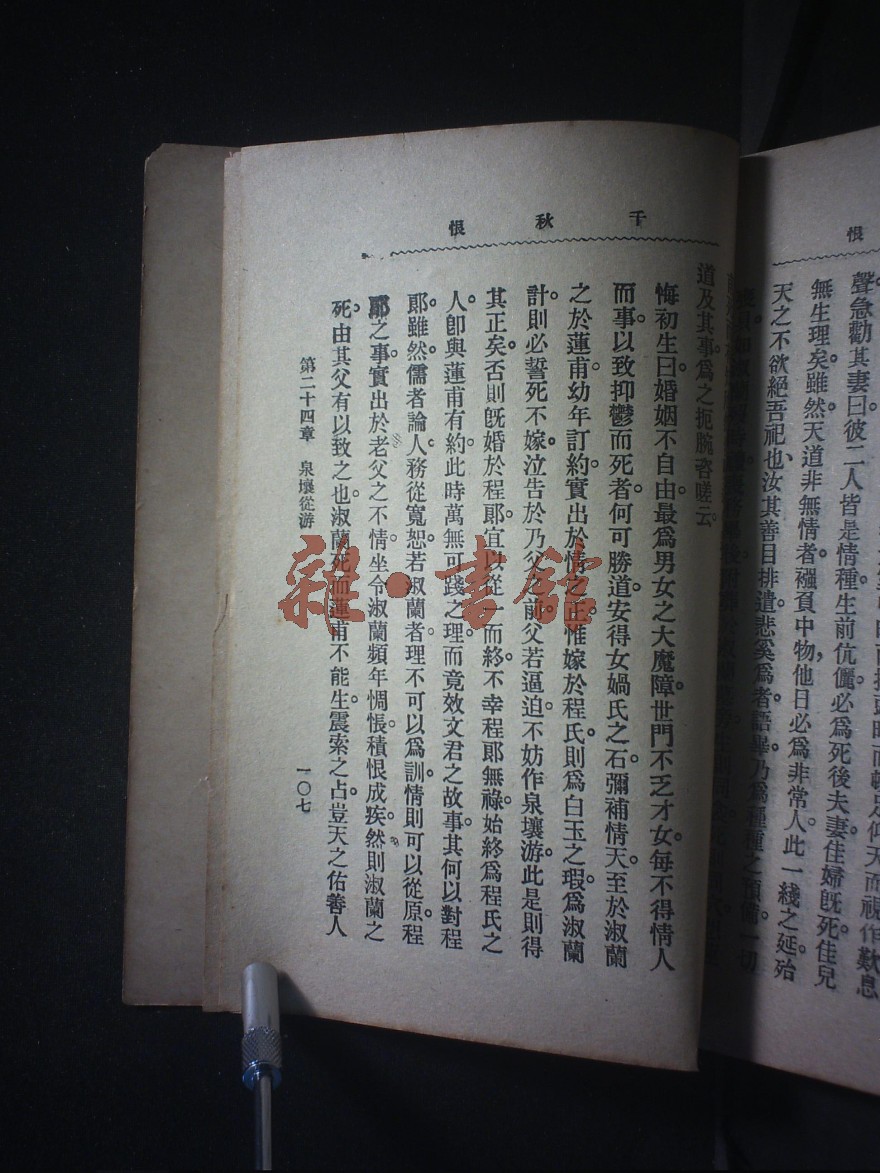 恨
時而頓足仰天而視作歎息
聲。急勸其妻曰。彼二人皆是情種。生前伉儷。必爲死後夫妻。佳婦旣死。佳兒
無生理矣。雖然天道非無情者。襁負中物。他日必爲非常人。此一綫之延。殆
天之不欲絕吾祀也、汝其善自排遣。悲奚爲者。語畢。乃爲種種之預備。一切
千秋恨
道及其事。爲之扼腕咨嗟云。
悔初生曰。婚姻不自由。最爲男女之大魔障。世門不乏才女。每不得情人
而事。以致抑鬱而死者。何可勝道。安得女媧氏之石。彌補情天。至於淑蘭
之於蓮甫。幼年訂約。實出於情之正。惟嫁於程氏。則爲白玉之瑕。爲淑蘭
計。則必誓死不嫁。泣告於乃父之前。父若逼迫。不妨作泉壤游。此是則得
其正矣。否則旣婚於程郞。宜以從一而終。不幸程郞無祿。始終爲程氏之
人。卽與蓮甫有約。此時萬無可踐之理。而竟效文君之故事。其何以對程
郞。雖然。儒者論人。務從寬恕。若淑蘭者。理不可以爲訓。情則可以從原。程
郞之事。實出於老父之不情。坐令淑蘭頻年惆悵。積恨成疾。然則淑蘭之
死。由其父有以致之也。淑蘭死而蓮甫不能生。震索之占。豈天之佑善人
第二十四章 泉壤從游
一〇七
雜·書館